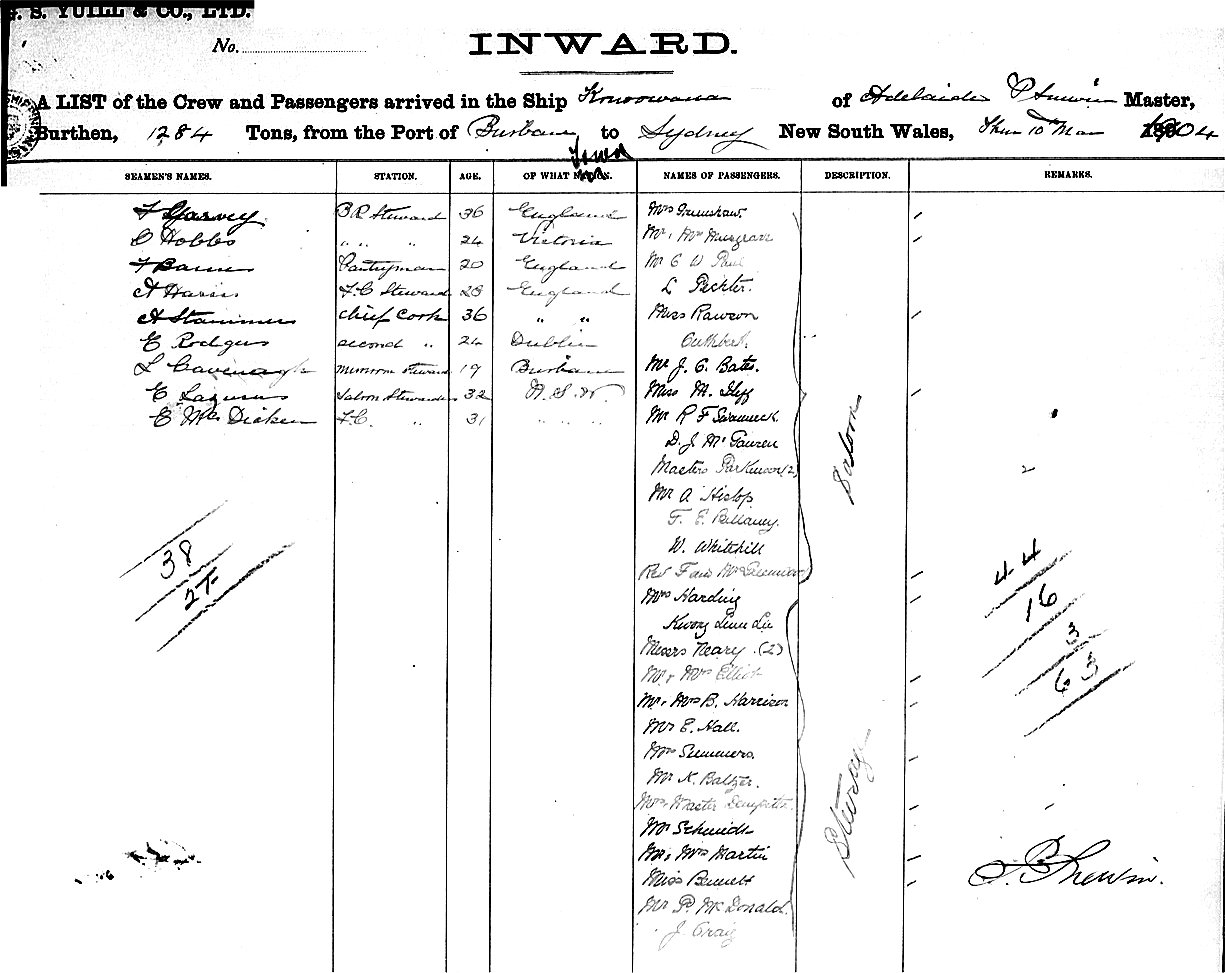 S. YUILL & CO., LTD.
No.
INWARD.
A LIST of the Crew and Passengers arrived in the Ship Konoowana of Adelaide Master,
Burthen, 1284 Tons, from the Port of Burbane to Sydney New South Wales, 10th Mar 1904
SEAMEN'S NAMES. STATION. AGE. OF WHAT NATION. NAMES OF PASSENGERS. DESCRIPTION. REMARKS.
F Garvey B R Steward 36 England Mrs Grimshaw
C Hobbs " " " 24 Victoria Mr, Mrs Musgrave
F Barnes Pantryman 20 England Mr C W Paul
A Harris F.C Steward 28 England L Pechter.
A Stammers chief Cook 36 " " Miss Rawson
E Rodgers second " 24 Dublin Cuthbert.
L Cavenagh messroom steward 19 Burbane Mr J. C. Bates.
E Lazarus Saloon Stewardess 32 N.S.W. Miss M.
E McDicken F.C. " 31 " " " Mr R F Swanneck.
D. J. Mc
Masters Parkinson (2) 2
Mr A. Hislop
Saloon
F. E. Bellamy.
W. Whitehill
38 Rev F and Mrs 44
27 Mrs Harding 16
Kwong Linn Lee 3
Messrs Neary (2) 63
Mr, Mrs Elliot
Mr, Mrs B. Harrison
Mr E. Hall.
Mrs Summers.
Mr K. Baltzer.
Mrs, Master
Steerage
Mr Schmidt
Mr, Mrs Martin
Miss Bennett
Mr P. McDonald.
J. Craig